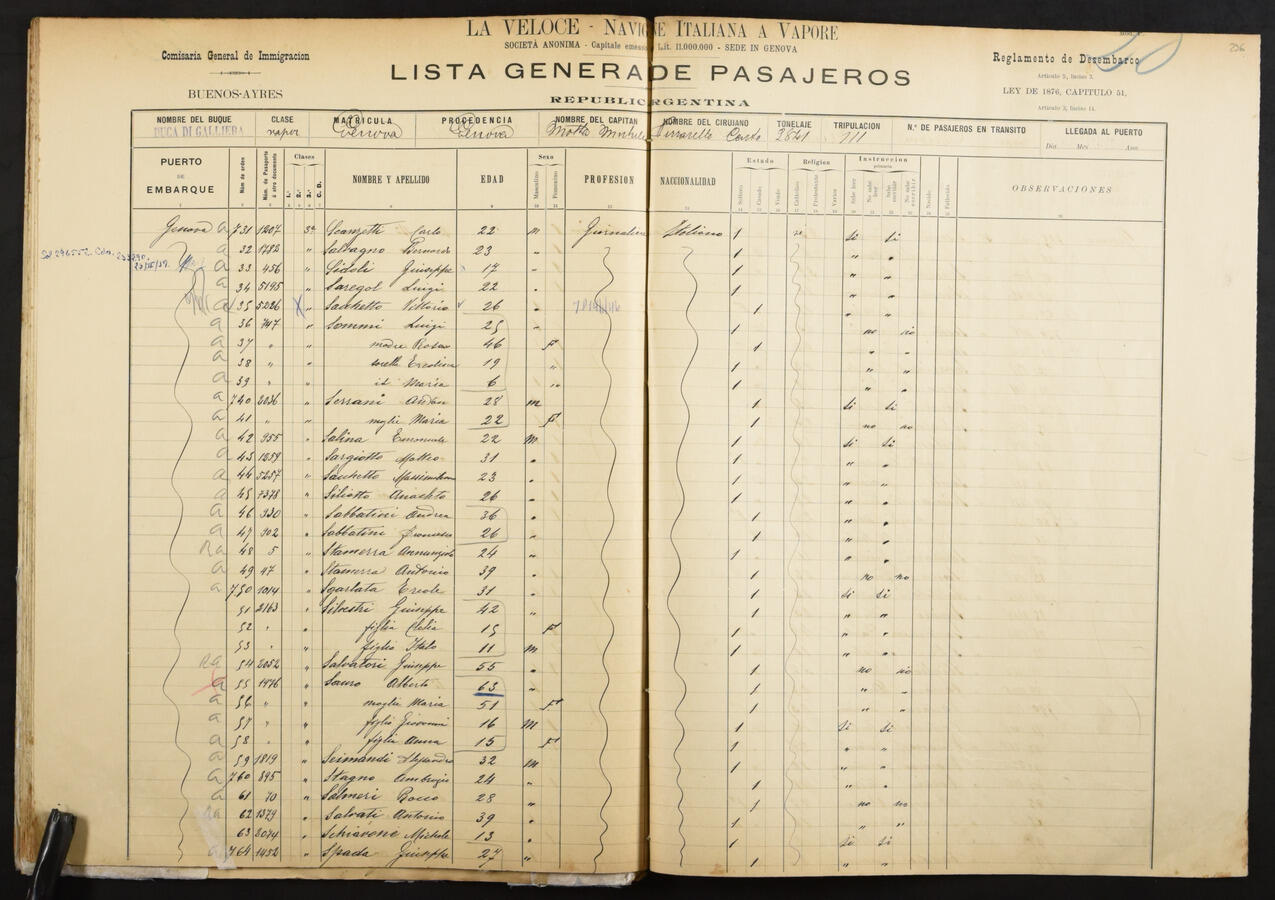 LA VELOCE - NAVIG NE ITALIANA A VAPORE
SOCIETÀ ANONIMA - Capitale emesso Lit. 11.000.000 - SEDE IN GENOVA
Comisaria General de Immigracion
BUENOS-AYRES
LISTA GENERA DE PASAJEROS
REPUBLIC RGENTINA
Reglamento de Desembarco
Articulo 3, Inciso 7.
LEY DE 1876, CAPITULO 51,
Articulo 3, Inciso 14.
236
NOMBRE DEL BUQUE CLASE MATRICULA PROCEDENCIA NOMBRE DEL CAPITAN NOMBRE DEL CIRUJANO TONELAJE TRIPULACION N.º DE PASAJEROS EN TRANSITO LLEGADA AL PUERTO
DUCA DI GALLIERA vapor Genova Genova Motta 111
Dia Mes Ano
PUERTO DE EMBARQUE Núm de orden Núm. de Pasaporte ú otro documento Clases 1.ª 2.ª 3.ª C. D. NOMBRE Y APELLIDO EDAD Sexo Masculino Femenino PROFESION NACCIONALIDAD Estado Soltero Casado Viudo Religion Catolico Protestante Varios Instruccion primaria Sabe leer No sabe leer Sabe escribir No sabe escribir Nacido Fallecido OBSERVACIONES
Genova a 731 1207 3a Scanzetti Carlo 22 m Giornaliere Italiano 1 si si
a 32 1782 " Salvagno Bernardo 23 " 1 " "
a 33 456 " Sidoli Giuseppe 17 " 1 " "
a 34 5195 " Saregol Luigi 22 " 1 " "
a 35 5226 " Sacchetto Vittorio 26 " 1 " "
a 36 747 " Sommi Luigi 25 " 1 no no
a 37 " " madre Rosa 46 F 1 " "
a 38 " " sorella 19 " 1 " "
a 39 " " id Maria 6 " 1 " "
a 740 2036 " Serrani Andrea 28 m 1 si si
a 41 " " moglie Maria 22 F 1 no no
a 42 955 " Salina Emanuele 22 m 1 si si
a 43 1259 " Sargiotto Matteo 31 " 1 " "
a 44 5257 " Sacchetto 23 " 1 " "
a 45 7378 " Siliotto Anacleto 26 " 1 " "
a 46 930 " Sabbatini Andrea 36 " 1 " "
a 47 902 " Sabbatini Francesco 26 " 1 " "
Ra 48 5 " Stamerra Annunziato 24 " 1 " "
a 49 47 " Stamerra Antonio 39 " 1 no no
a 750 1014 " Sgarlata Ercole 31 " 1 si si
51 2163 " Silvestri Giuseppe 42 " 1 " "
52 " " figlia Clelia 15 F 1 " "
53 " " figlio Italo 11 m 1 " "
Ra 54 2052 " Salvatori Giuseppe 55 " 1 no no
a 55 1476 " Sauro Alberto 63 " 1 " "
a 56 " " moglie Maria 51 F 1 " "
a 57 " " figlio Giovanni 16 m 1 si si
a 58 " " figlia Anna 15 F 1 " "
a 59 1819 " Seimandi 32 m 1 " "
a 760 895 " Stagno Ambrogio 24 " 1 " "
a 61 70 " Salmeri Rocco 28 " 1 no no
Ra 62 1379 " Salvati Antonio 39 " 1 " "
63 2074 " Schiavone Michele 13 " 1 si si
a 764 1452 " Spada Giuseppe 27 " 1 " "